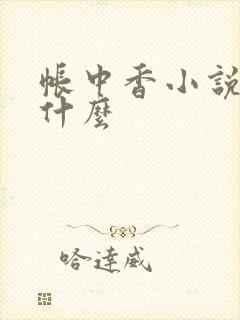 帳中香小說
什麼
哈達威